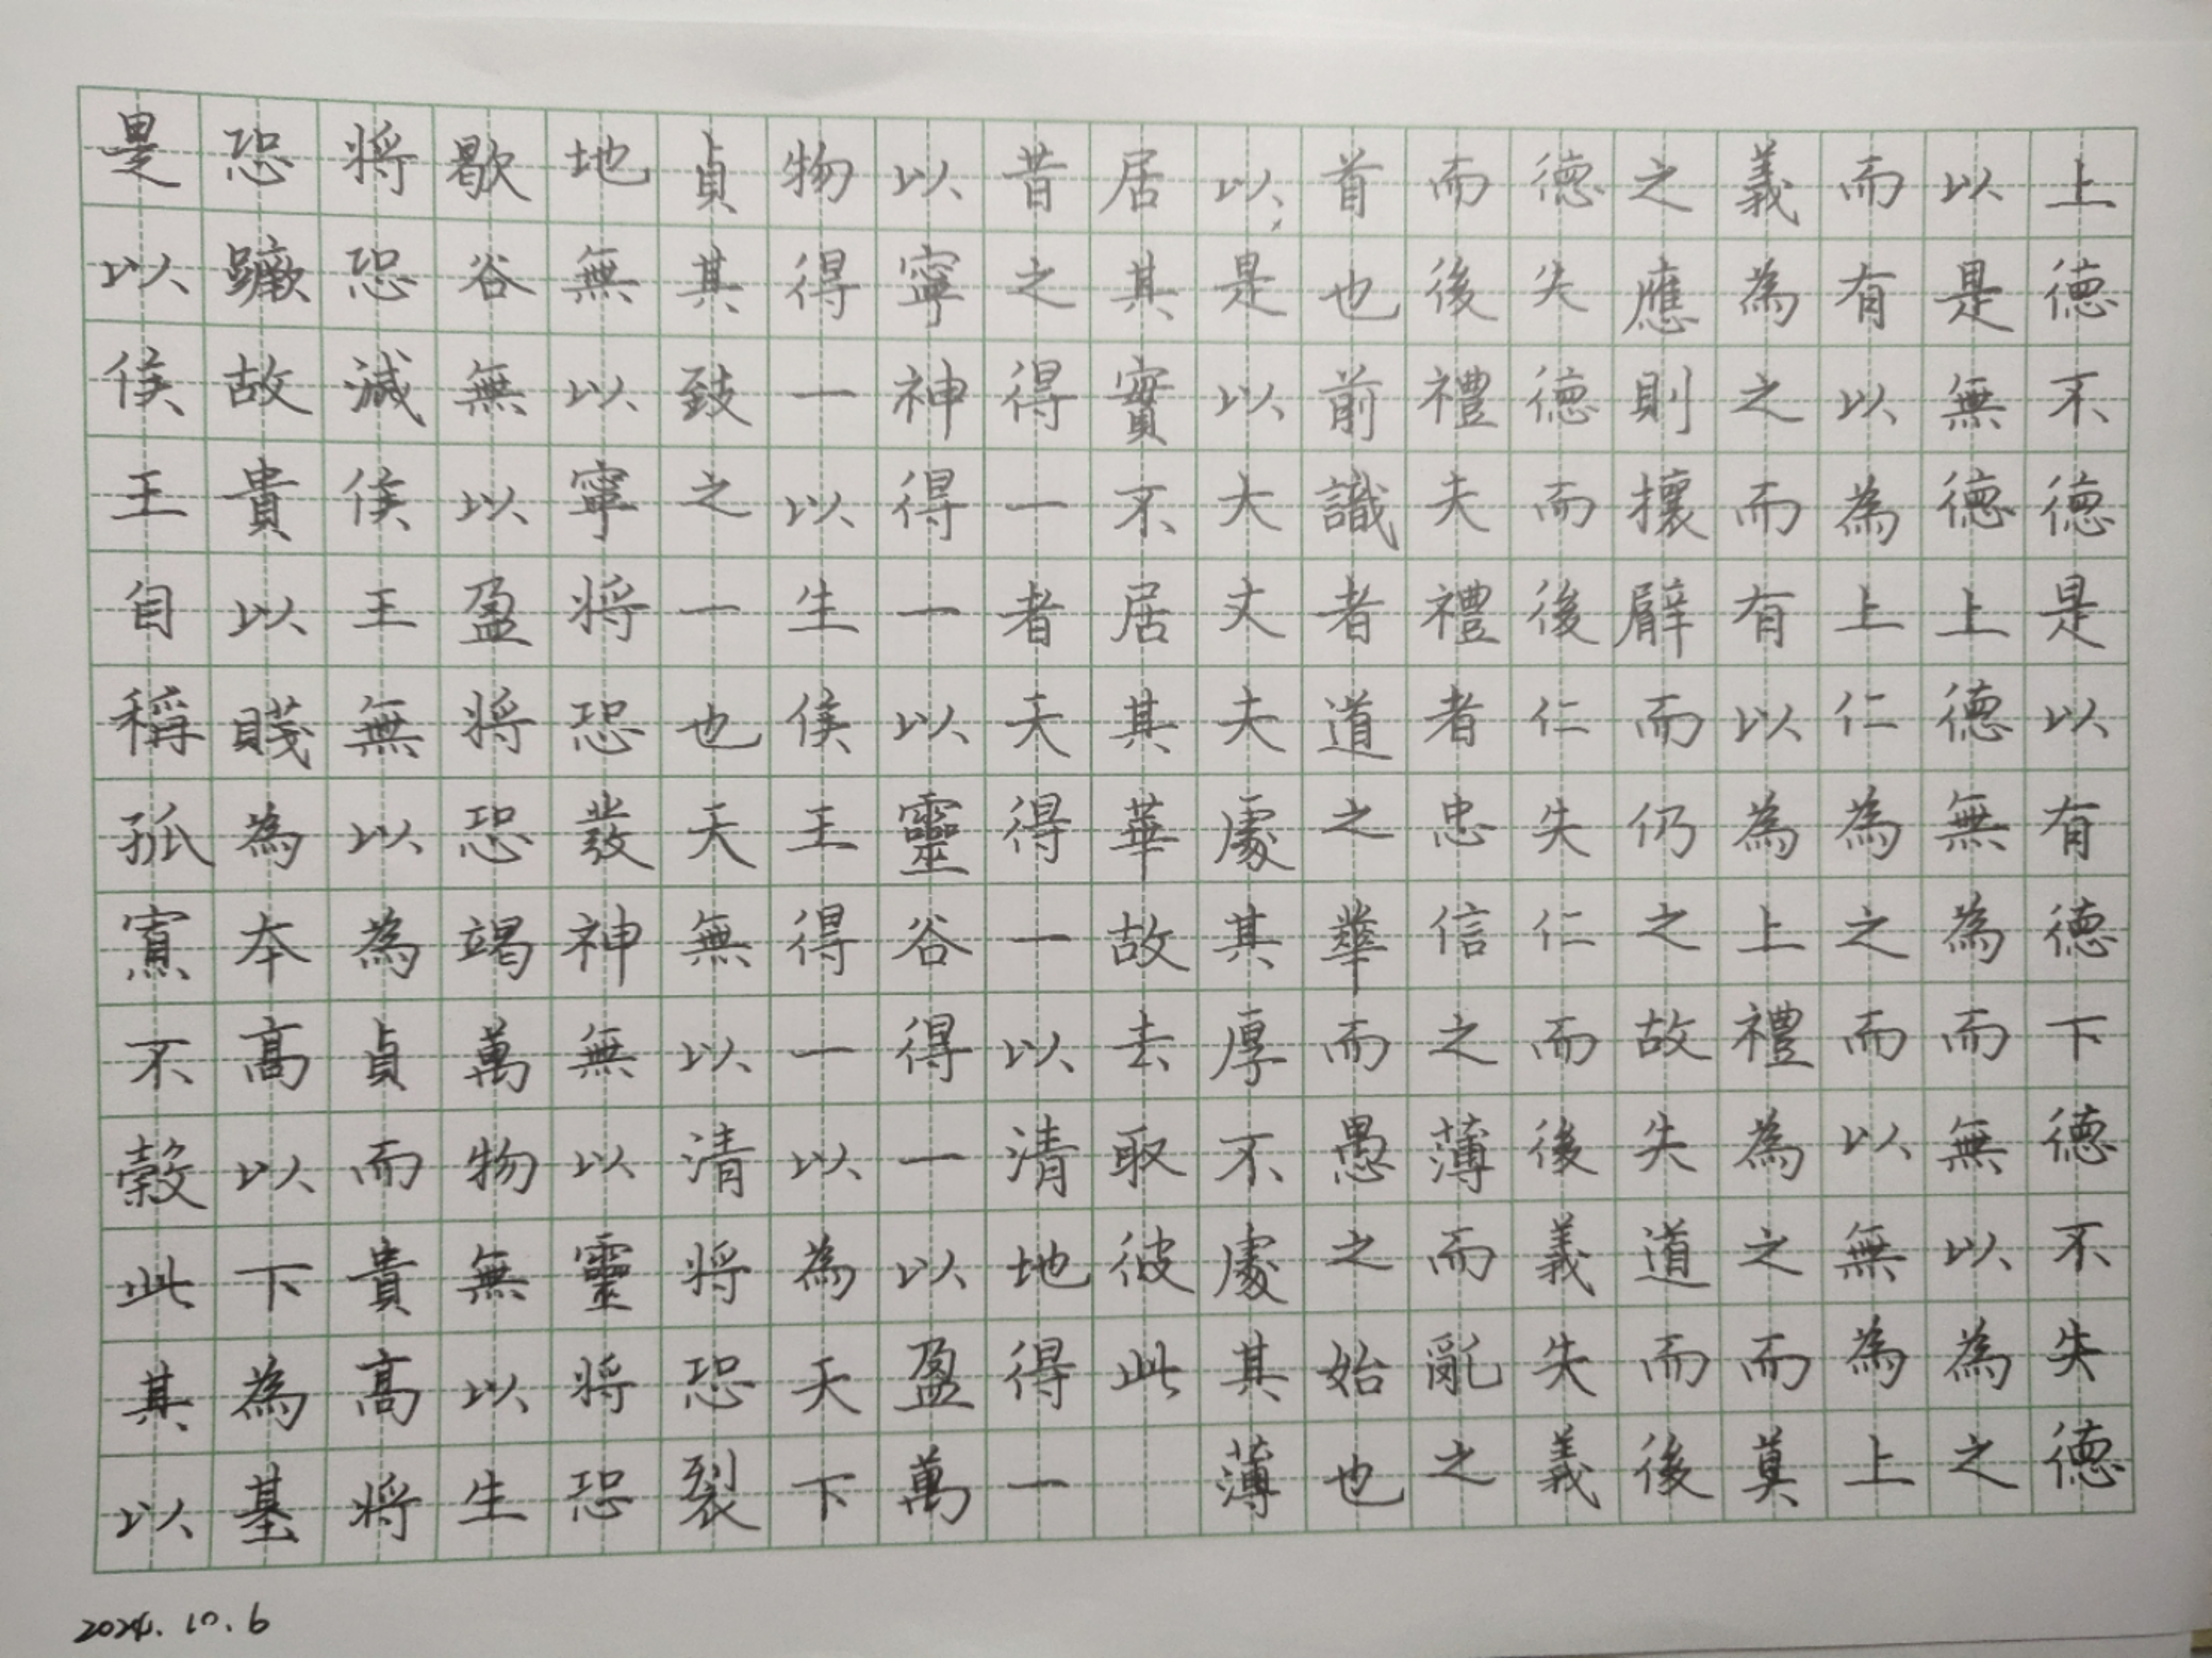 上德不德是以有德下德不失德
以是無德上德無為而無以為之
而有以為上仁為之而以無為上
義為之而有以為上禮為之而莫
之應則攘臂而仍之故失道而後
德失德而後仁失仁而後義失義
而後禮夫禮者忠信之薄而亂之
首也前識者道之華而愚之始也
以是以大丈夫處其厚不處其薄
居其實不居其華故去取彼此
昔之得一者天得一以清地得一
以寧神得一以靈谷得一以盈萬
物得一以生侯王得一以為天下
貞其致之一也天無以清将恐裂
地無以寧将恐發神無以靈将恐
歇谷無以盈将恐竭萬物無以生
将恐滅侯王無以為貞而貴高将
恐蹶故貴以賤為本高以下為基
是以侯王自稱孤寡不穀此其以
2024.10.6